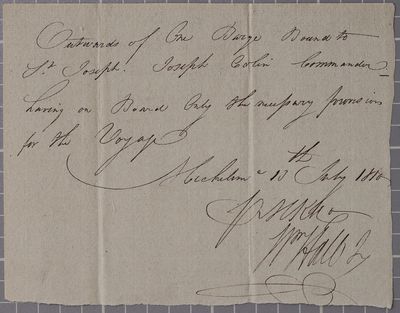 Outwards of One Barge Bound to
St. Joseph. Joseph Colin Commander
having on Board Only the necessary provisions
for the Voyage
10th July 1810